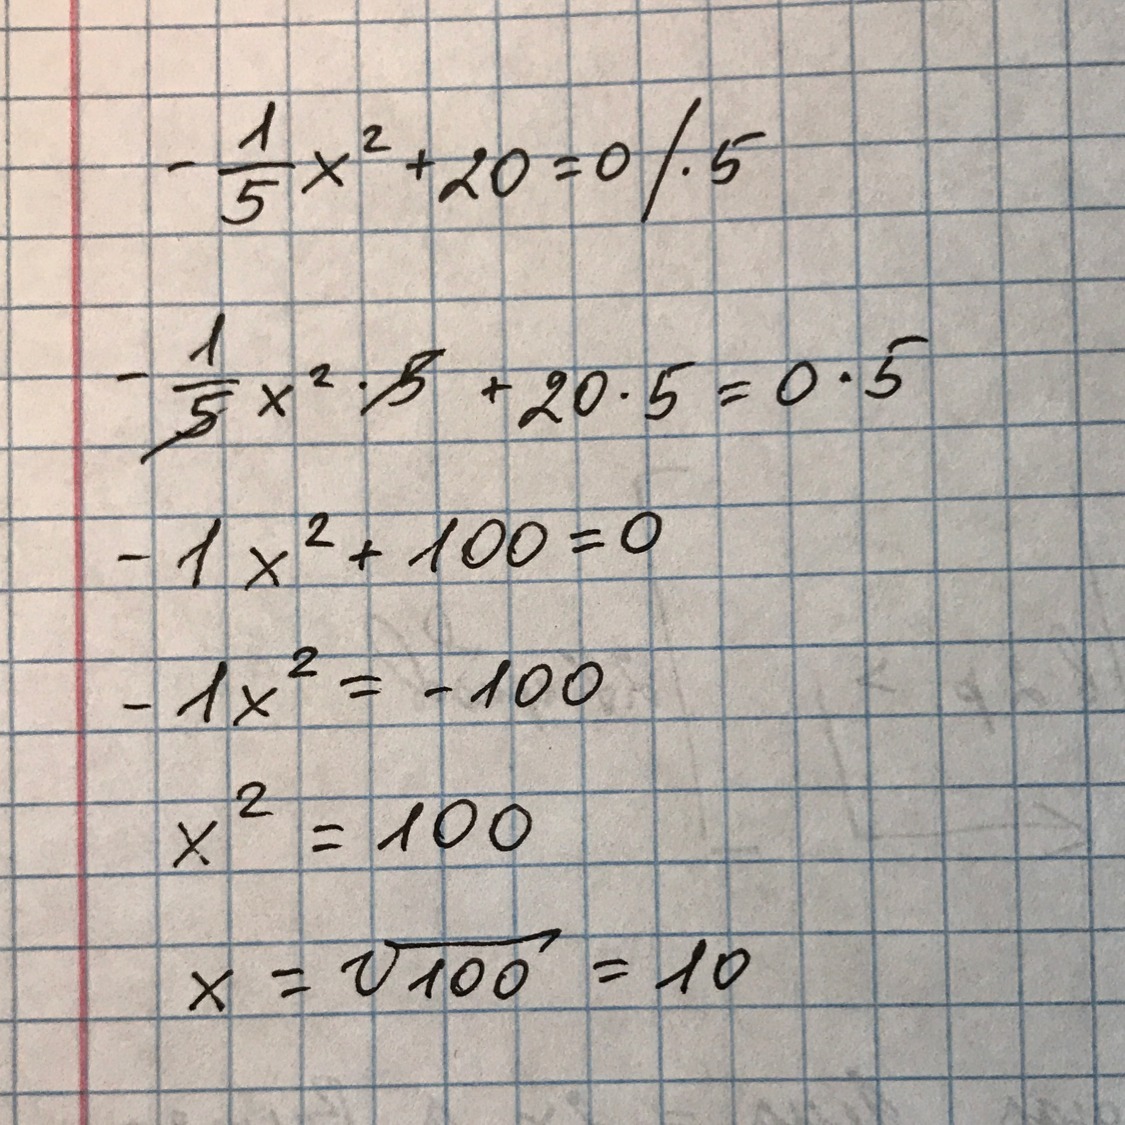 - 1/5 x² + 20 = 0 / · 5
- 1/5 x² · 5 + 20 · 5 = 0 · 5
- 1x² + 100 = 0
- 1x² = - 100
x² = 100
x = √100 = 10